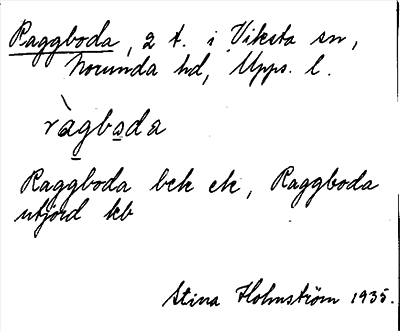 Raggboda, 2 t. i Viksta sn,
Norunda hd, Upps. l.
ràgbo̲da
Raggboda bck ek, Raggboda
utjord kb
Stina Holmström 1935.